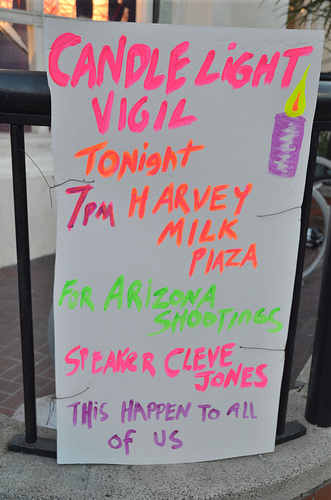 CANDLE LiGHT
ViGiL
Tonight
7pm HARVEY
MILK
PlAZA
FOR ARiZONA
SHOOTiNGS
SPEAKER CLEVE
JONES
THiS HAPPEN TO ALL
OF US